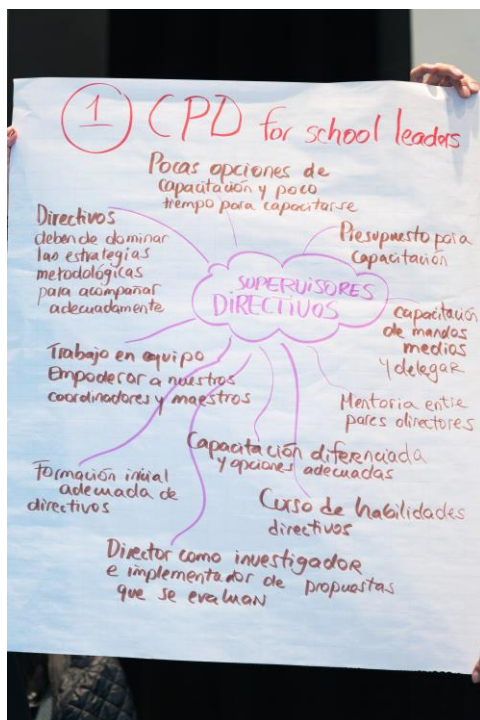 1 CPD for school leaders
Pocas opciones de
capacitación y poco
tiempo para capacitarse
Directivos
deben de dominar
las estrategias
metodológicas
para acompañar
adecuadamente
Presupuesto para
capacitación
SUPERVISORES
DIRECTIVOS
capacitación
de mandos
medios
y delegar
Trabajo en equipo
Empoderar a nuestros
coordinadores y maestros
Mentoria entre
pares directores
Capacitación diferenciada
y opciones adecuadas
Formación inicial
adecuada de
directivos
Curso de habilidades
directivos
Director como investigador
e implementador de propuestas
que se evaluan